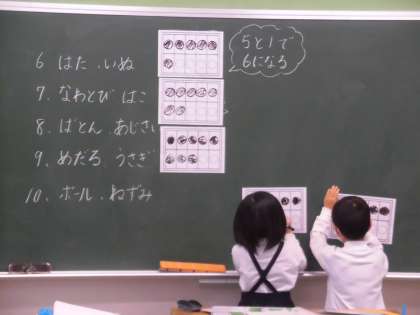 6 はた．いぬ
7. なわとび はこ
8. ばとん．あじさい
9. めだる．うさぎ
10. ボール．ねずみ
5と1で
6になる